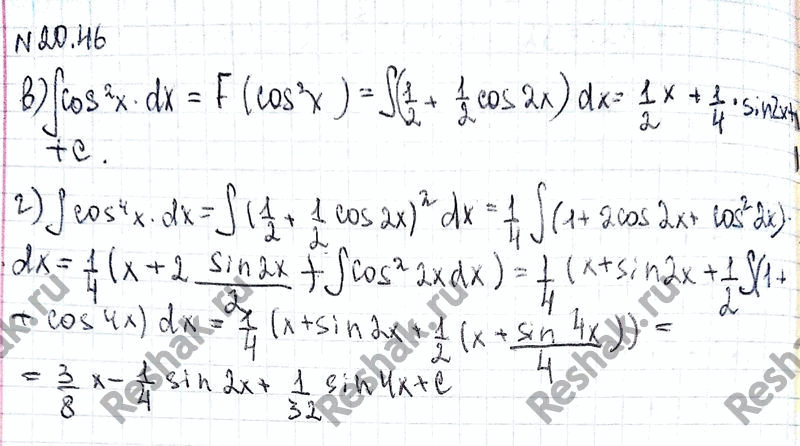 №20.46
в) ∫cos²x · dx = F (cos²x) = ∫(1/2 + 1/2 cos 2x) dx = 1/2 x + 1/4 · sin2x +
+ C.
г) ∫cos⁴x · dx = ∫(1/2 + 1/2 cos 2x)² dx = 1/4 ∫(1 + 2cos 2x + cos² 2x) ·
· dx = 1/4 (x + 2 sin2x/2 + ∫cos² 2x dx) = 1/4 (x + sin2x + 1/2 ∫(1 +
+ cos 4x) dx = 1/4 (x + sin 2x + 1/2 (x + sin 4x/4)) =
= 3/8 x - 1/4 sin 2x + 1/32 sin 4x + C
Reshak.ru Reshak.ru Reshak.ru Reshak.ru